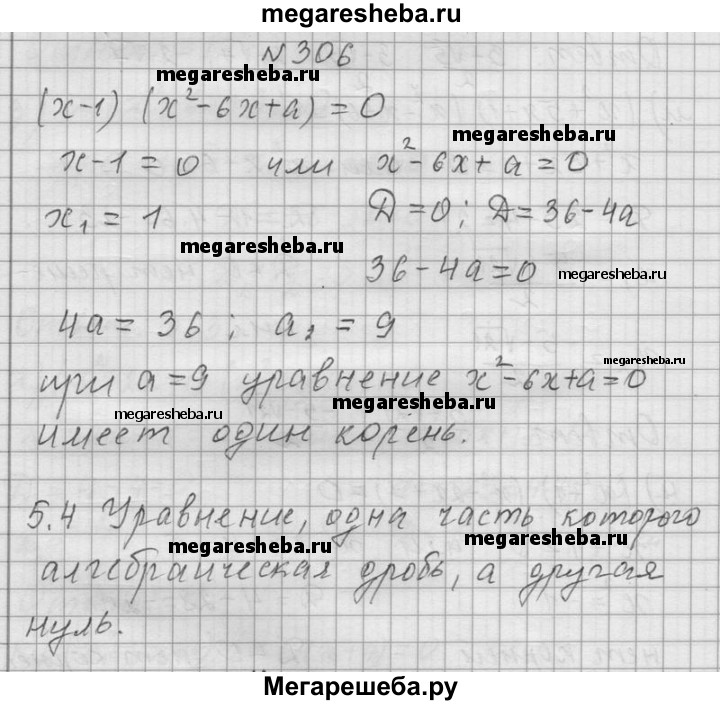 megaresheba.ru
№306
megaresheba.ru
(x-1) (x²-6x+a) = 0
megaresheba.ru
x-1=0 или x²-6x+a=0
x₁ = 1 D=0; D=36-4a
megaresheba.ru
36-4a=0 megaresheba.ru
4a = 36; a₁ = 9
megaresheba.ru
при a=9 уравнение x²-6x+a=0
megaresheba.ru megaresheba.ru
имеет один корень.
5.4 Уравнение, одна часть которого
megaresheba.ru megaresheba.ru
алгебраическая дробь, а другая
нуль.
Мегарешеба.ру